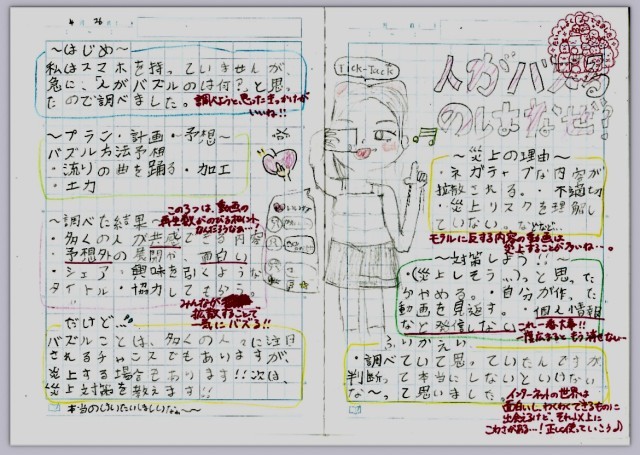 4 26
～はじめ～
私はスマホを持っていませんが
急に、「人がバズルのは何?」と思っ
たので調べました。
調べようと思ったきっかけが
いいね!!
～プラン・計画・予想～
バズル方法予想
・流りの曲を踊る・加工
・エカ
～調べた結果～
この3つは、動画の
再生数がのびるポイント
なんだろうなぁ…!
・多くの人が共感できる内容
・予想外の展開や、面白い
・シェア、興味を引くような
タイトル・協力してもらう。
みんなが
拡散することで
一気にバズる!!
だけど…
バズルことは、多くの人々に注目
されるチャンスでもありますが、
炎上する場合もあります!!次は、
炎上対策を教えます!!
Tick-Tack
人がバズる
のはなぜ?
～炎上の理由～
・ネガティブな内容が
拡散される。・不適切
・炎上リスクを理解し
ていない。などなど…
モラルに反する内容の動画は
炎上することが多いね…。
～対策しよう!!～
・(炎上しそう…)と思っ
たらやめる。・自分が作った
動画を見返す。・個人情報
など発信しない
これ一番大事!!
一度広まると、もう消せない…
ふりかえり
・調べていて思っていたんですが、
判断って本当にしないといけない
な～って思いました。
インターネットの世界は
面白いし、わくわくできるものに
出会えるけど、それ以上に
こわさがある…!正しく使っていこう♪